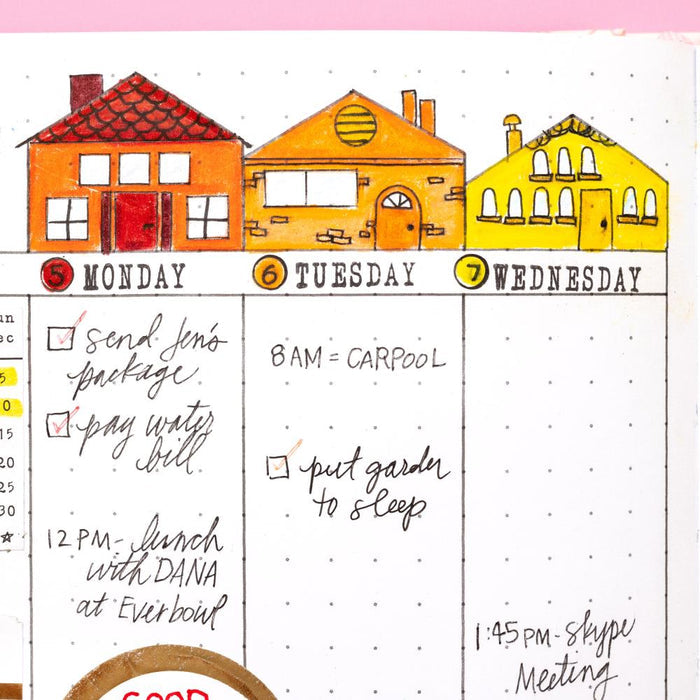 5 MONDAY
6 TUESDAY
7 WEDNESDAY
un
ec
5
0
15
20
25
30
send Jen's
package
pay water
bill
12 PM - lunch
with DANA
at Everbowl
GOOD
8 AM = CARPOOL
put garden
to sleep
1:45 PM - skype
Meeting